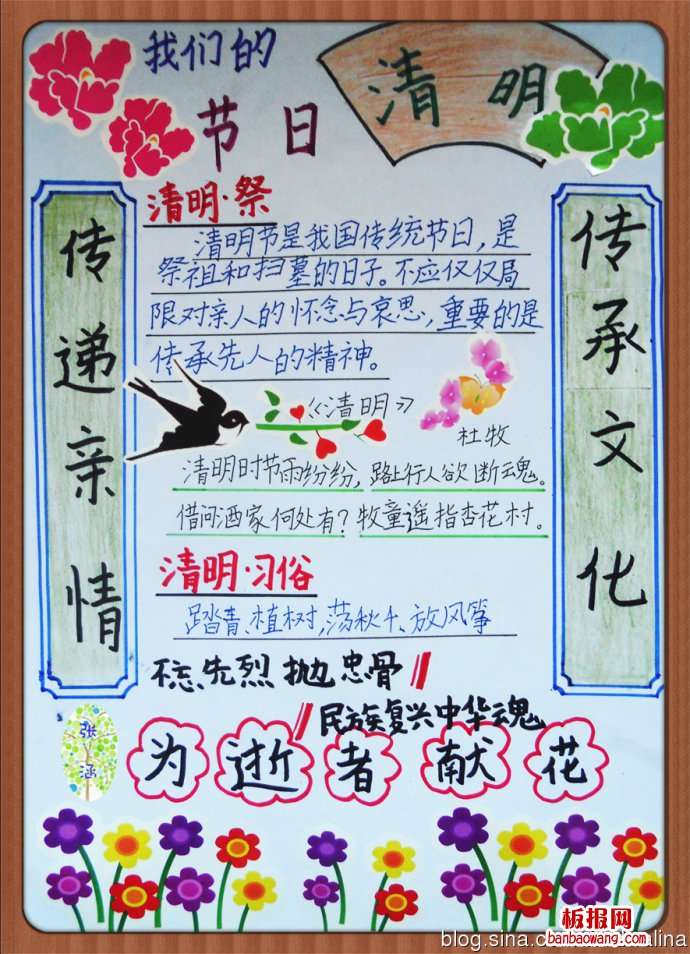 我们的
节日
清明
传递亲情
传承文化
清明·祭
清明节是我国传统节日，是
祭祖和扫墓的日子。不应仅仅局
限对亲人的怀念与哀思，重要的是
传承先人的精神。
《清明》
杜牧
清明时节雨纷纷，路上行人欲断魂。
借问酒家何处有？牧童遥指杏花村。
清明·习俗
踏青、植树，荡秋千、放风筝
不忘先烈抛忠骨
民族复兴中华魂
张涵
为逝者献花
板报网
banbaowang.com
blog.sina.co
alina